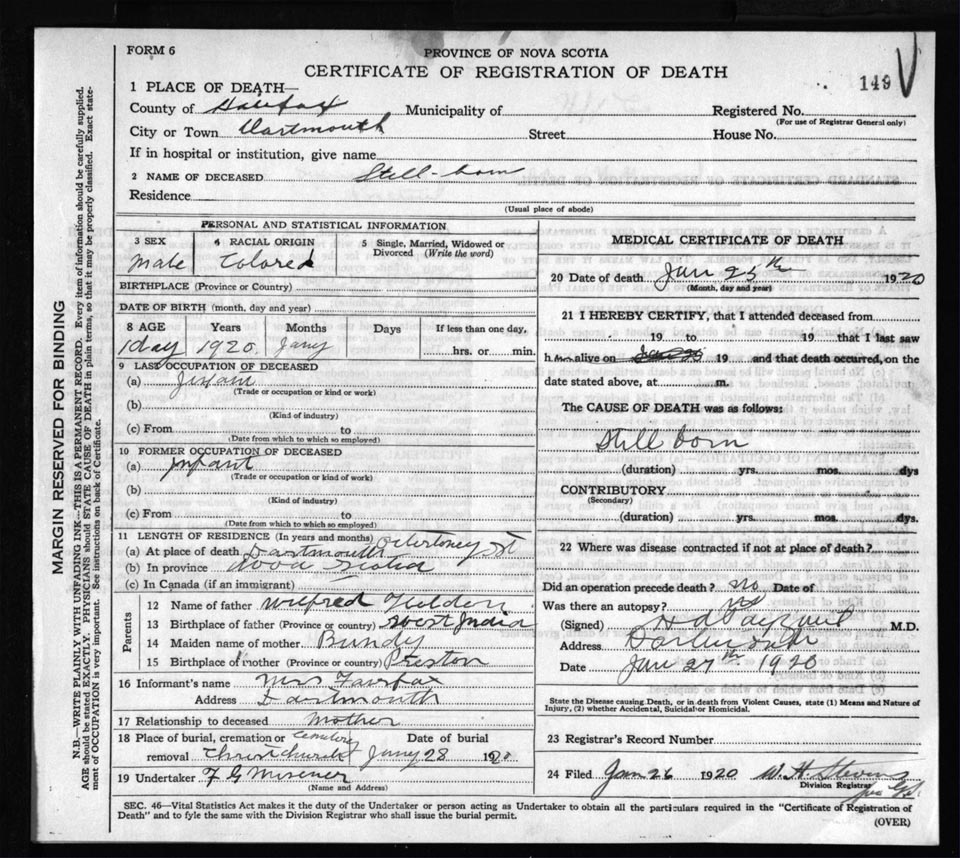 FORM 6
PROVINCE OF NOVA SCOTIA
CERTIFICATE OF REGISTRATION OF DEATH
149
1 PLACE OF DEATH—
County of Halifax Municipality of Registered No.
(For use of Registrar General only)
City or Town Dartmouth Street House No.
If in hospital or institution, give name
2 NAME OF DECEASED Still-born
Residence
(Usual place of abode)
PERSONAL AND STATISTICAL INFORMATION
3 SEX 4 RACIAL ORIGIN 5 Single, Married, Widowed or
Divorced (Write the word)
Male Colored
BIRTHPLACE (Province or Country)
DATE OF BIRTH (month, day and year)
8 AGE Years Months Days If less than one day,
1 day 1920 Jany hrs. or min.
9 LAST OCCUPATION OF DECEASED
(a)
(Trade or occupation or kind or work)
(b)
(Kind of industry)
(c) From to
(Date from which to which so employed)
10 FORMER OCCUPATION OF DECEASED
(a) Infant
(Trade or occupation or kind of work)
(b)
(Kind of industry)
(c) From to
(Date from which to which so employed)
11 LENGTH OF RESIDENCE (In years and months)
(a) At place of death Dartmouth St
(b) In province Nova Scotia
(c) In Canada (if an immigrant)
Parents
12 Name of father Wilfred
13 Birthplace of father (Province or country) West India
14 Maiden name of mother Bundy
15 Birthplace of mother (Province or country) Preston
16 Informant's name Mrs Fairfax
Address Dartmouth
17 Relationship to deceased Mother
18 Place of burial, cremation or Cemetery Date of burial
removal Christchurch Jany 28 1920
19 Undertaker F G Misener
(Name and Address)
MEDICAL CERTIFICATE OF DEATH
20 Date of death Jan 25th 1920
(Month, day and year)
21 I HEREBY CERTIFY, that I attended deceased from
19 to 19 that I last saw
h alive on 19 and that death occurred, on the
date stated above, at m.
The CAUSE OF DEATH was as follows:
Still born
(duration) yrs. mos. dys
CONTRIBUTORY
(Secondary)
(duration) yrs. mos. dys.
22 Where was disease contracted if not at place of death?
Did an operation precede death? no Date of
Was there an autopsy? no
(Signed) M.D.
Address Dartmouth
Date Jan 27th 1920
State the Disease causing Death, or in death from Violent Causes, state (1) Means and Nature of
Injury, (2) whether Accidental, Suicidal or Homicidal.
23 Registrar's Record Number
24 Filed Jan 26 1920 W. H. Stevens
Division Registrar
SEC. 46—Vital Statistics Act makes it the duty of the Undertaker or person acting as Undertaker to obtain all the particulars required in the "Certificate of Registration of
Death" and to fyle the same with the Division Registrar who shall issue the burial permit.
(OVER)
MARGIN RESERVED FOR BINDING
N.B.—WRITE PLAINLY WITH UNFADING INK—THIS IS A PERMANENT RECORD. Every item of information should be carefully supplied.
AGE should be stated EXACTLY. PHYSICIANS should STATE CAUSE OF DEATH in plain terms, so that it may be properly classified. Exact state-
ment of OCCUPATION is very important. See instructions on back of Certificate.